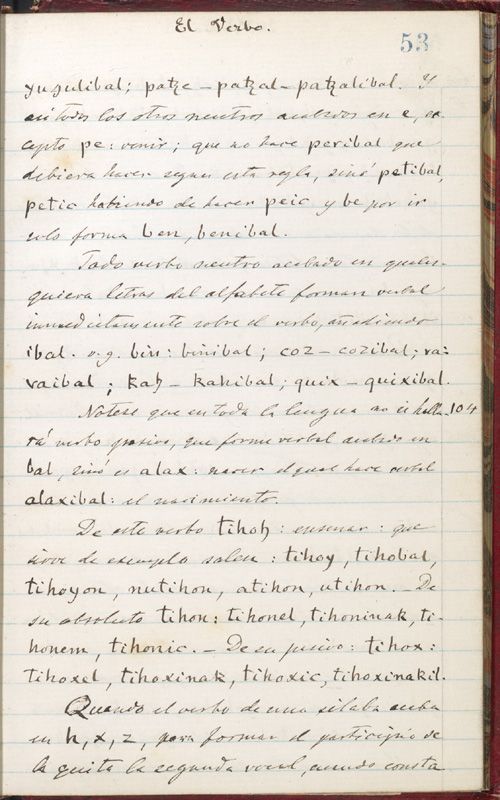 El Verbo.
53
yuqulibal; patze – patzal – patzalibal. Y
asi todos los otros neutros acabados en e, ex-
cepto pe: venir; que no hace peribal que
debiera hacer segun esta regla, sinó petibal,
petic habiendo de hacer peic y be por ir
solo forma ben, benibal.
Todo verbo neutro acabado en quales-
quiera letras del alfabeto forman verbal
inmediatamente sobre el verbo, añadiendo
ibal. v.g. bin: binibal; coz – cozibal; va:
vaibal; kah – kahibal; quix – quixibal.
Notese que en toda la lengua no se halla- 104
rá verbo pasivo, que forme verbal acabado en
bal, sinó es alax: nacer el qual hace verbal
alaxibal: el nacimiento.
De este verbo tihoh: enseñar: que
sirve de exemplo salen: tihoy, tihobal,
tihoyon, nutihon, atihon, utihon. – De
su absoluto tihon: tihonel, tihoninak, ti-
honem, tihonic. – De su pasivo: tihox:
tihoxel, tihoxinak, tihoxic, tihoxinakil.
Quando el verbo de una silaba acaba
en h, x, z, para formar el participio se
le quita la segunda vocal, quando consta